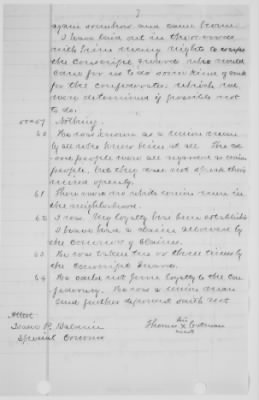 7
again somehow and came home.
I have laid out in the woods
with him many nights to escape
the conscript guard who would
come for us to do some kind of work
for the confederates which we
were determined if possible not
to do.
Nothing.
60 He was known as a union man
by all who knew him at all. The
people were all regarded as union
people, but they did not speak their
mind openly.
61 There were no white union men in
the neighborhood.
62 I was. My loyalty has been established
I have had a claim allowed by
the commrs of claims.
63 He was taken two or three times by
the Conscript Guard.
64 He could not prove loyalty to the Con
federacy. He was a union man
And further deponent saith not
Attest
Special Comr
his
Thomas X
mark